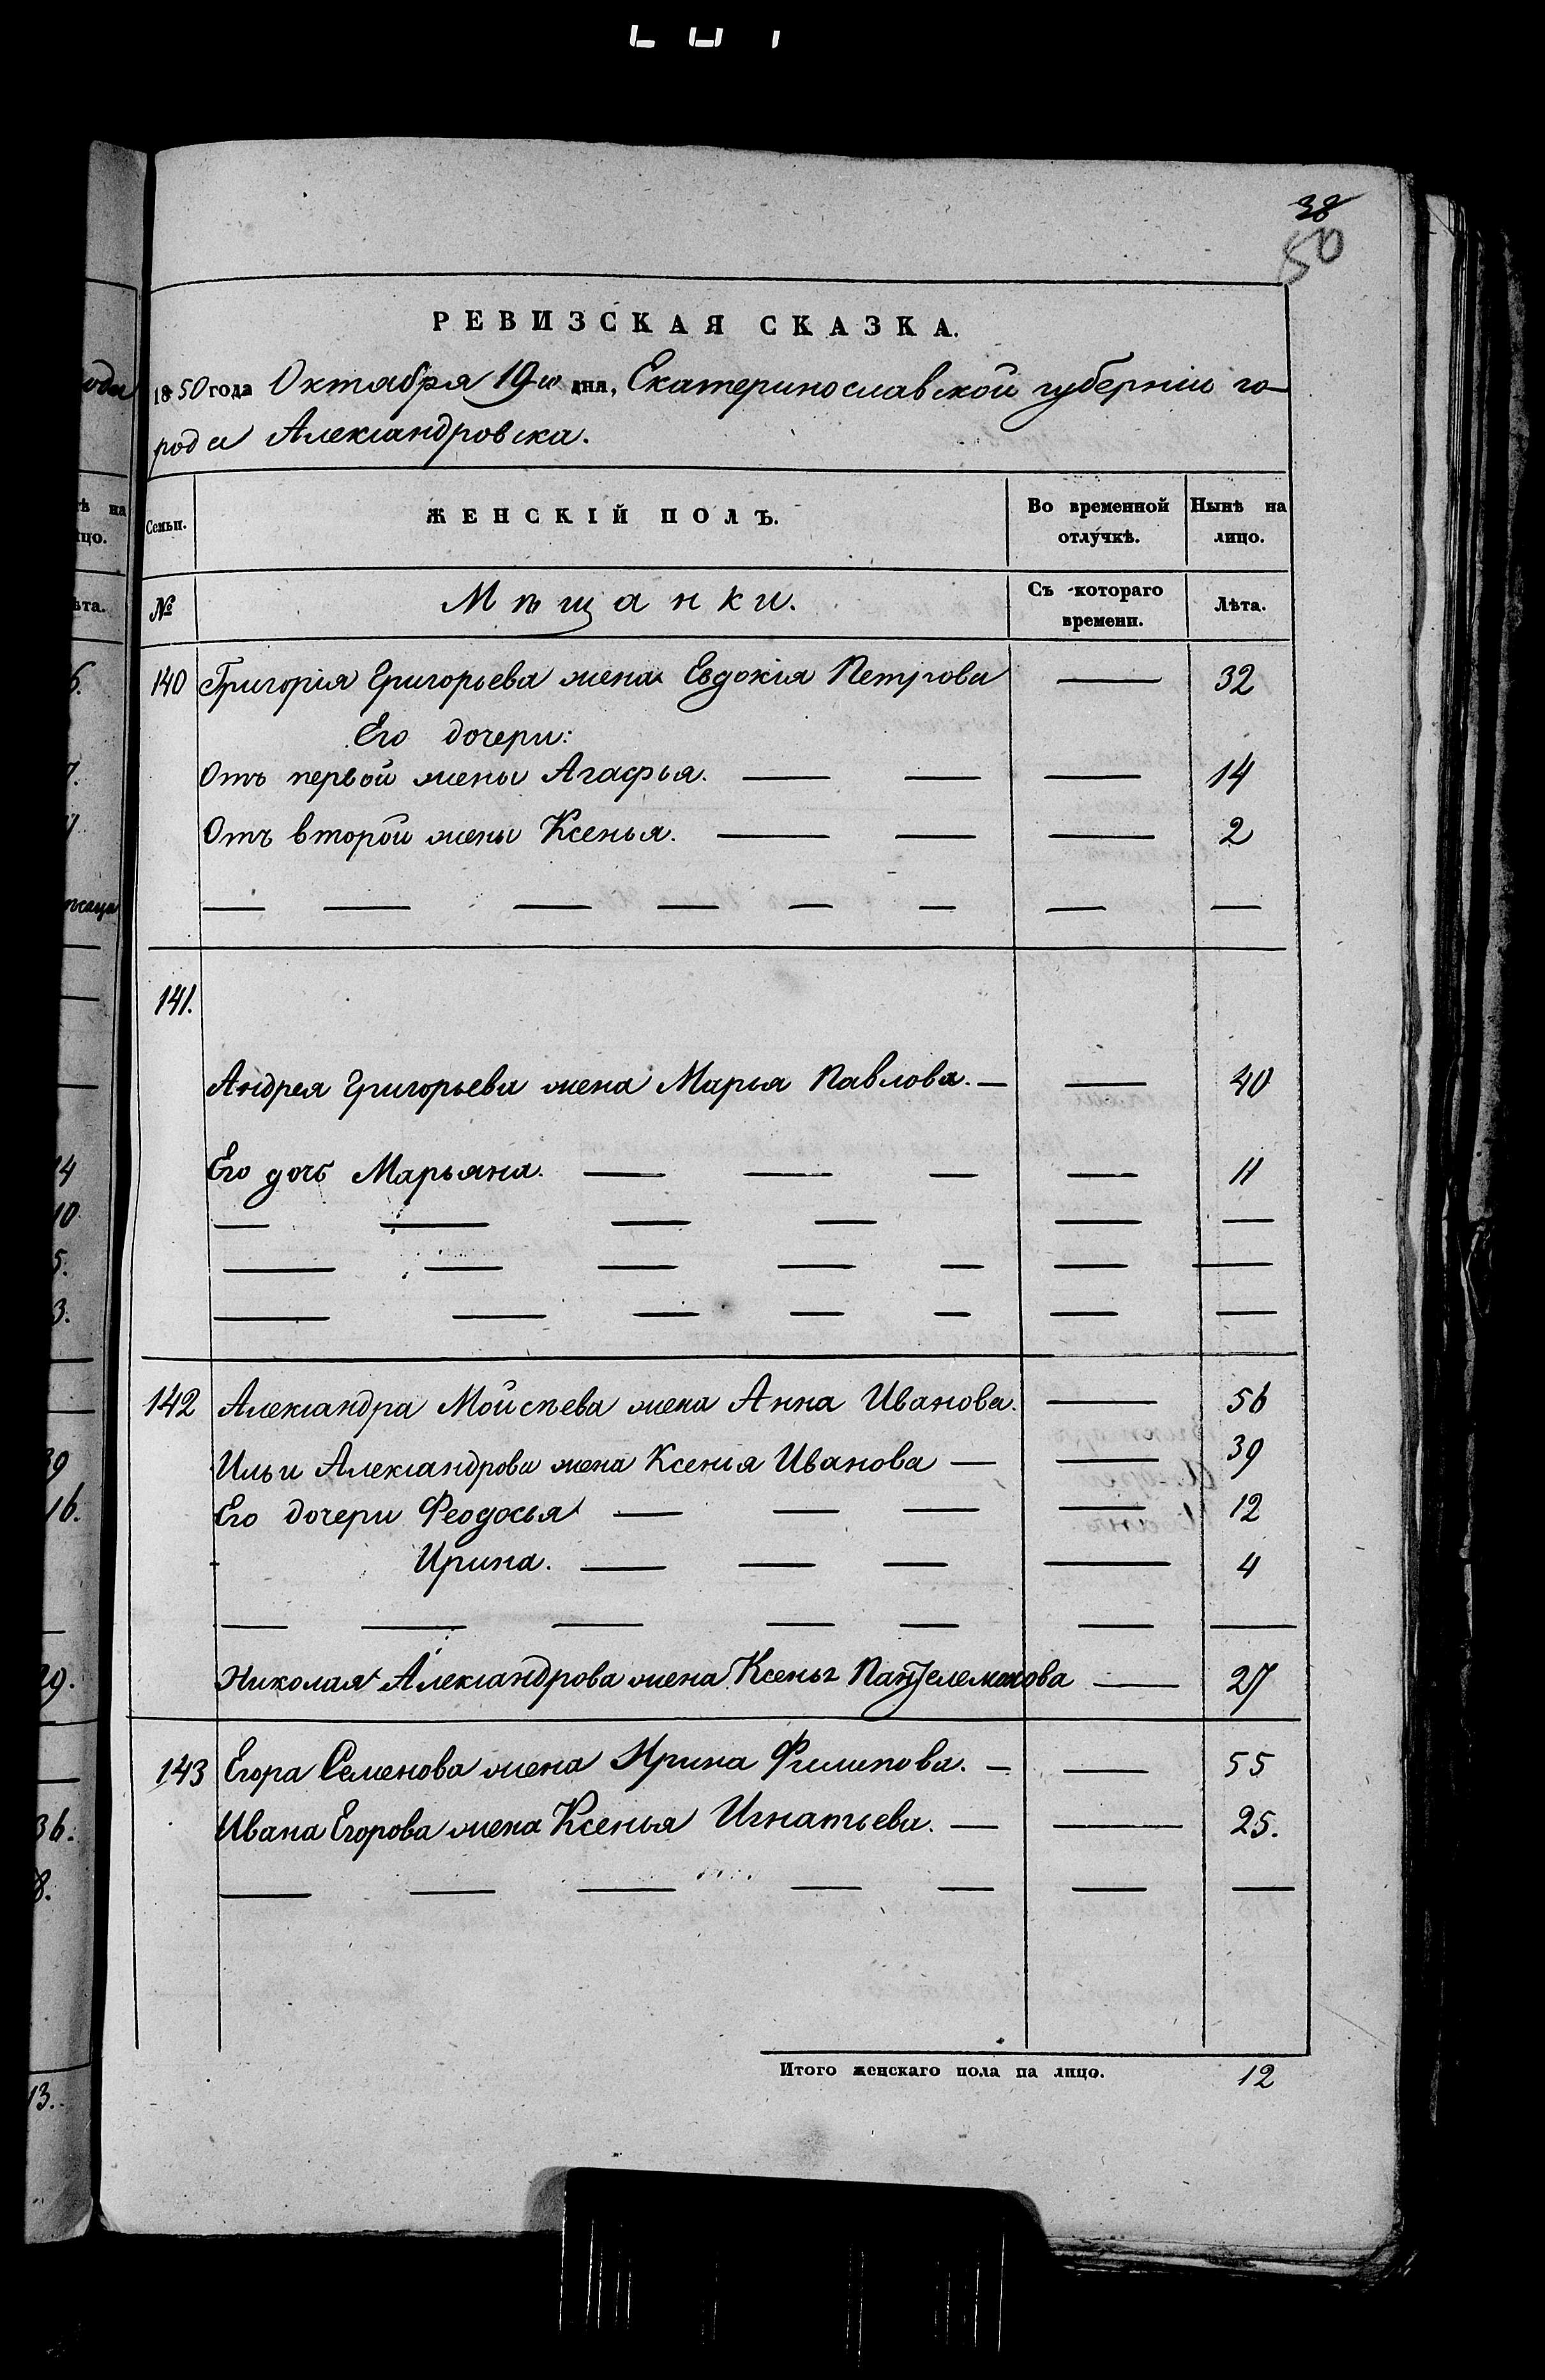 38
50
РЕВИЗСКАЯ СКАЗКА.
1850 года Октября 19го дня, Екатеринославской губерніи го-
рода Александровска.
Семьи. ЖЕНСКІЙ ПОЛЪ. Во временной отлучкѣ. Нынѣ на лицо.
№ Мѣщанки. Съ котораго времени. Лѣта.
140 Григорія Григорьева жена Евдокія Петрова — 32
Его дочери:
Отъ первой жены Агафья. — — — 14
Отъ второй жены Ксенья. — — — 2
141.
Андрея Григорьева жена Марья Павлова. — — 40
Его дочь Марьяна. — — — — 11
142 Александра Мойсѣева жена Анна Иванова. — 56
Ильи Александрова жена Ксенья Иванова — — 39
Его дочери Феодосья — — — — 12
Ирина. — — — — 4
Николая Александрова жена Ксенья Пантелемонова — 27
143 Егора Семенова жена Ирина Филипова. — — 55
Ивана Егорова жена Ксенья Игнатьева. — — 25.
Итого женскаго пола на лицо. 12